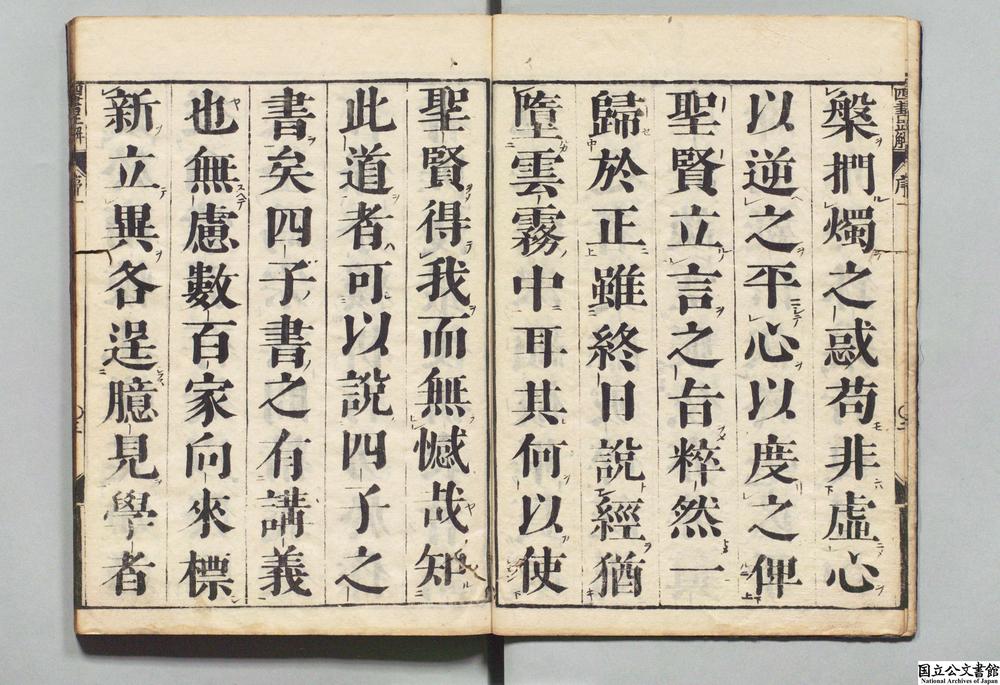 槃捫燭之惑苟非虛心
以逆之平心以度之俾
聖賢立言之旨粹然一
歸於正雖終日說經猶
墮雲霧中耳其何以使
聖賢得我而無憾哉知
此道者可以說四子之
書矣四子書之有講義
也無慮數百家向來標
新立異各逞臆見學者
国立公文書館
National Archives of Japan